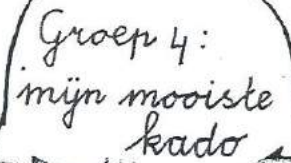 Groep 4:
mijn mooiste
kado